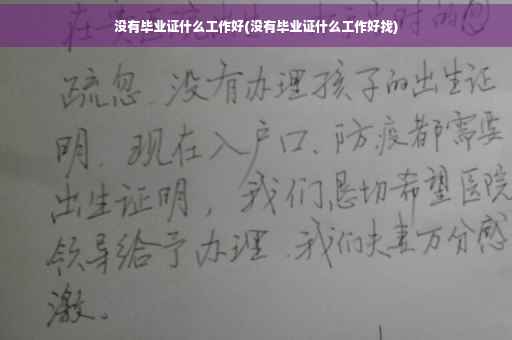 没有毕业证什么工作好(没有毕业证什么工作好找)
疏忽.没有办理孩子的出生证
明.现在入户口、防疫都需要
出生证明，我们恳切希望医院
领导给予办理.我们夫妻万分感
激。